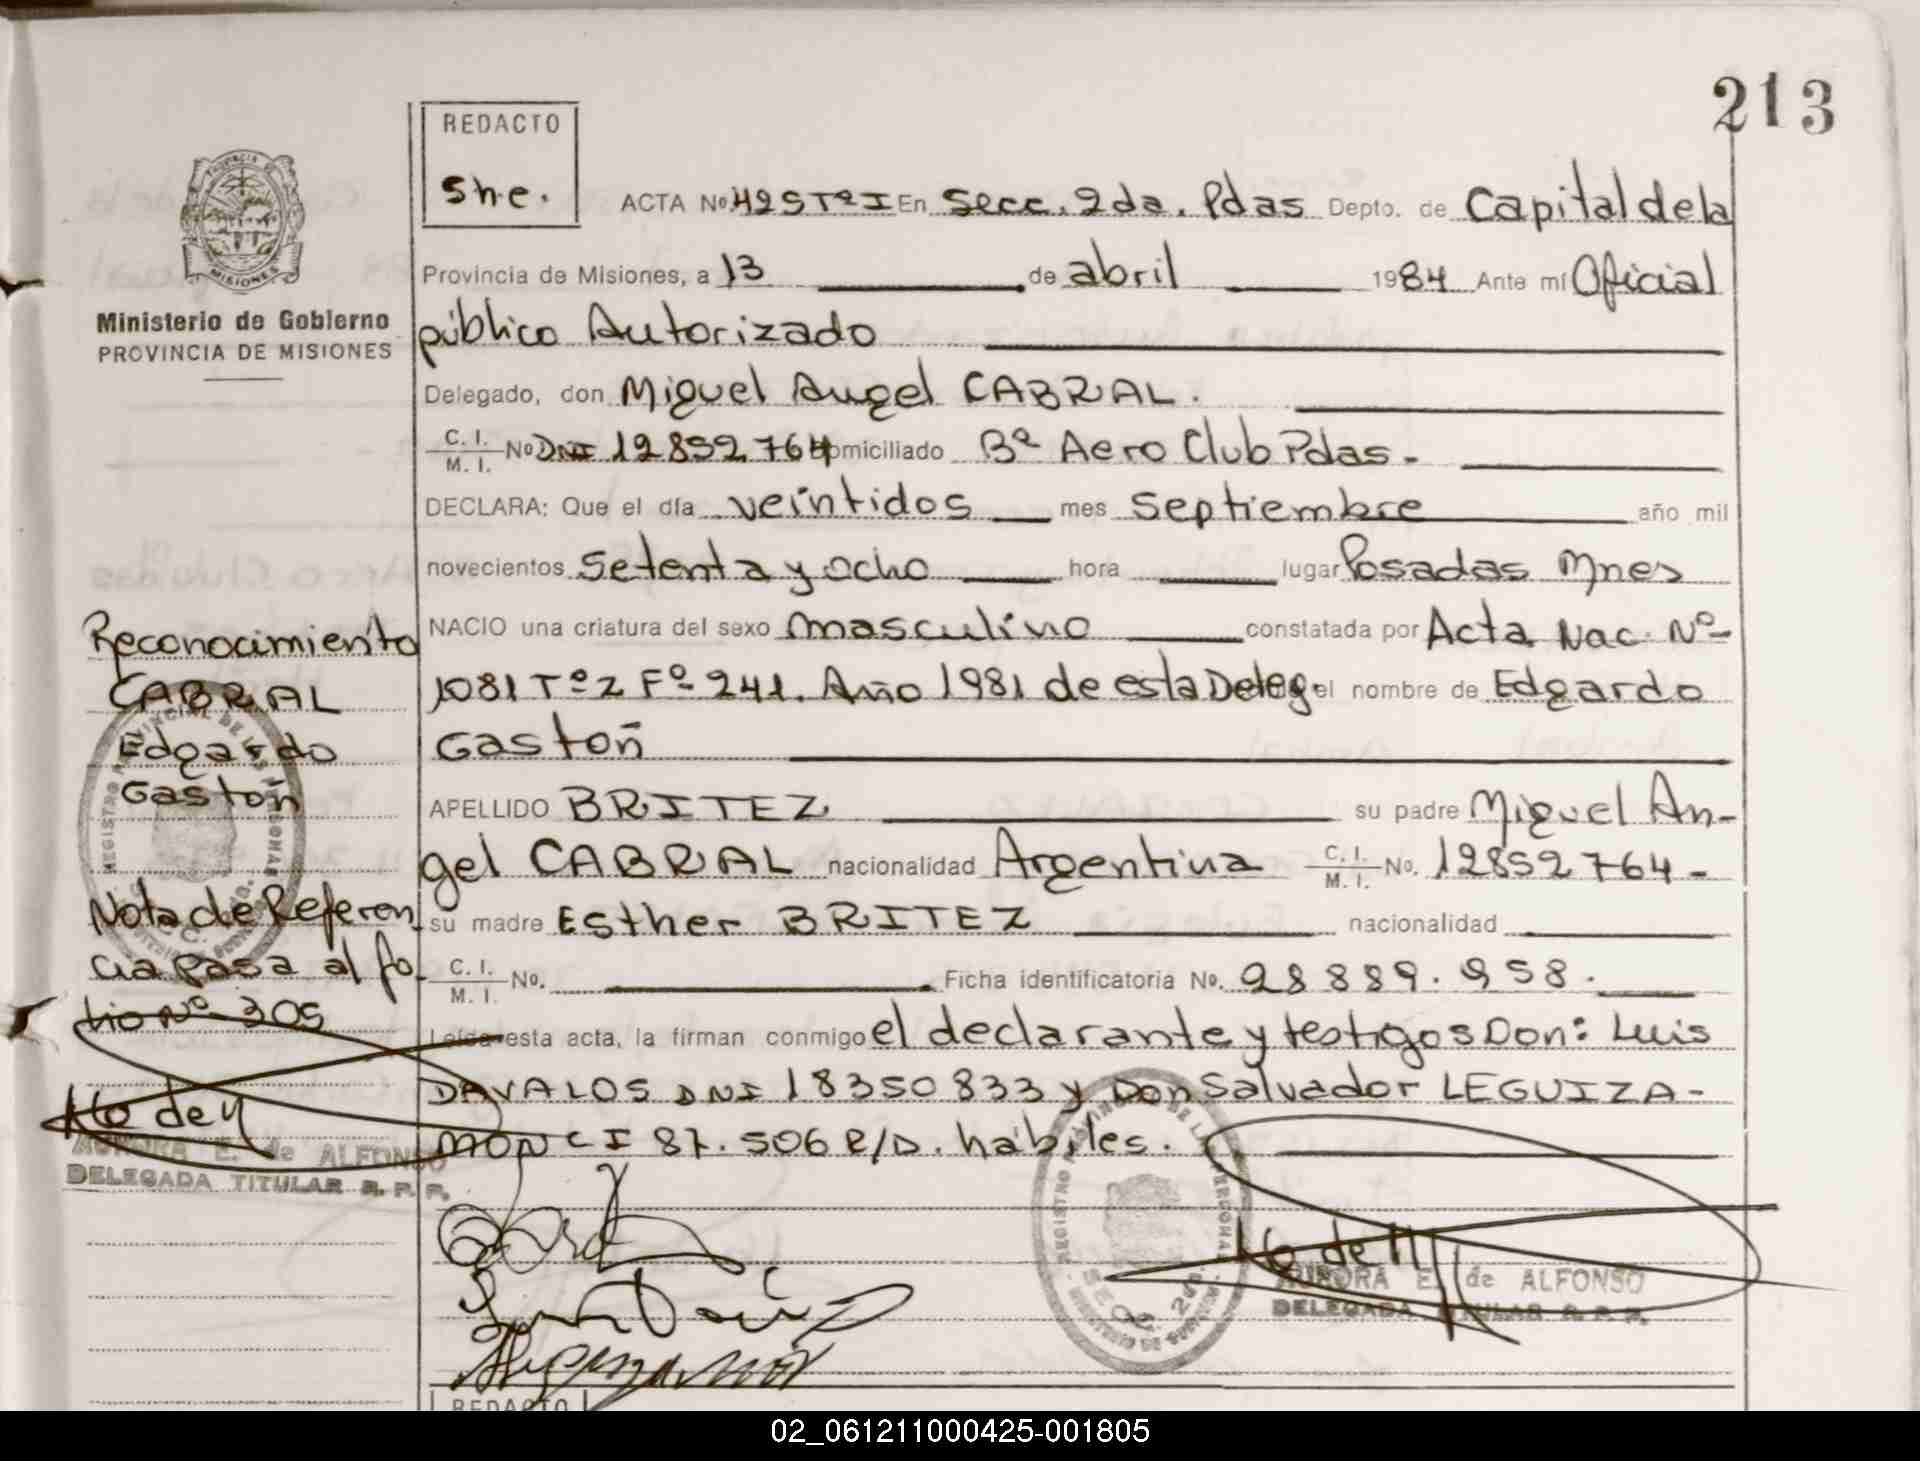 213
REDACTO
She.
ACTA No 425 Tº I En Secc. 2da. Pdas Depto. de Capital de la
Provincia de Misiones, a 13 de abril 1984 Ante mí Oficial
público Autorizado
Delegado, don Miguel Angel CABRAL.
C. I. / M. I. No DNI 12852764 domiciliado Bº Aero Club Pdas.
DECLARA: Que el día veintidos mes Septiembre año mil
novecientos Setenta y ocho hora lugar Posadas Mnes
NACIO una criatura del sexo masculino constatada por Acta Nac. Nº
1081 Tº 2 Fº 241. Año 1981 de esta Deleg. el nombre de Edgardo
Gastón
APELLIDO BRITEZ su padre Miguel An-
gel CABRAL nacionalidad Argentina C. I. / M. I. No. 12852764-
su madre Esther BRITEZ nacionalidad
C. I. / M. I. No. Ficha identificatoria No. 28889.958.
Leída esta acta, la firman conmigo el declarante y testigos Don: Luis
DAVALOS DNI 18350833 y Don Salvador LEGUIZA-
MON C I 87.506 R/D. hábiles.
AURORA E. de ALFONSO
DELEGADA TITULAR R. P. P.
REDACTO
PROVINCIA DE
MISIONES
Ministerio de Gobierno
PROVINCIA DE MISIONES
Reconocimiento
CABRAL
Edgardo
Gastón
Nota de Referen
cia pasa al fo-
lio Nº 305
AURORA E. de ALFONSO
DELEGADA TITULAR R. P. P.
02_061211000425-001805